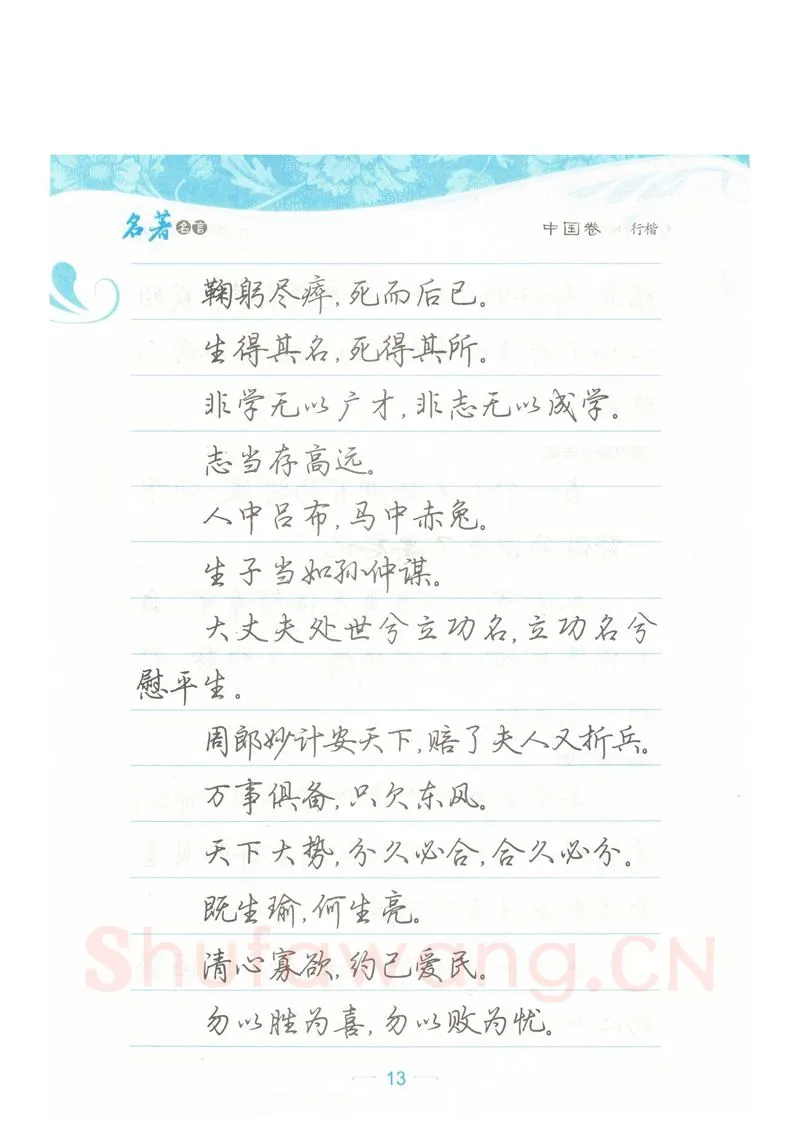 名著名言
中国卷 行楷
鞠躬尽瘁,死而后已。
生得其名,死得其所。
非学无以广才,非志无以成学。
志当存高远。
人中吕布,马中赤兔。
生子当如孙仲谋。
大丈夫处世兮立功名,立功名兮
慰平生。
周郎妙计安天下,赔了夫人又折兵。
万事俱备,只欠东风。
天下大势,分久必合,合久必分。
既生瑜,何生亮。
清心寡欲,约己爱民。
勿以胜为喜,勿以败为忧。
Shufawang.CN
13